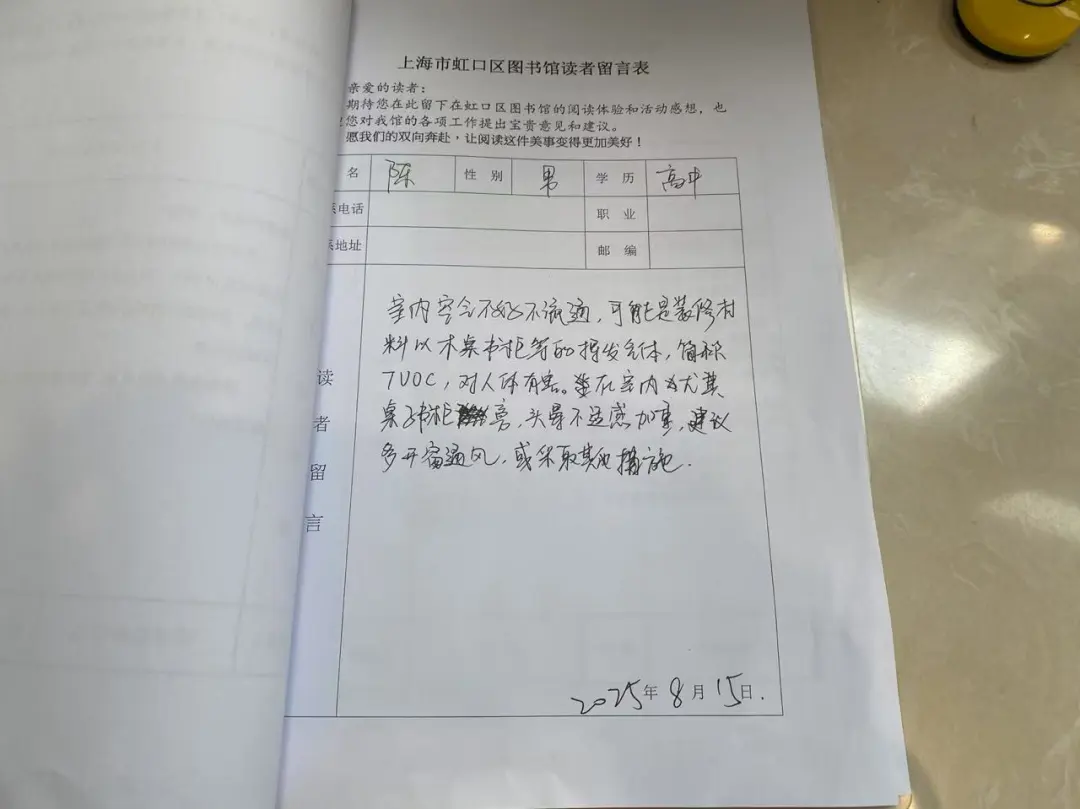 上海市虹口区图书馆读者留言表
亲爱的读者：
期待您在此留下在虹口区图书馆的阅读体验和活动感想，也
您对我馆的各项工作提出宝贵意见和建议。
愿我们的双向奔赴，让阅读这件美事变得更加美好！
名 陈 性别 男 学历 高中
系电话 职业
系地址 邮编
读者留言
室内空气不好不流通，可能是装修材
料以木桌书柜等的挥发气体，简称
TVOC，对人体有害。在室内尤其
桌子书柜旁，头晕不适感加重，建议
多开窗通风，或采取其他措施.
2025年8月15日.